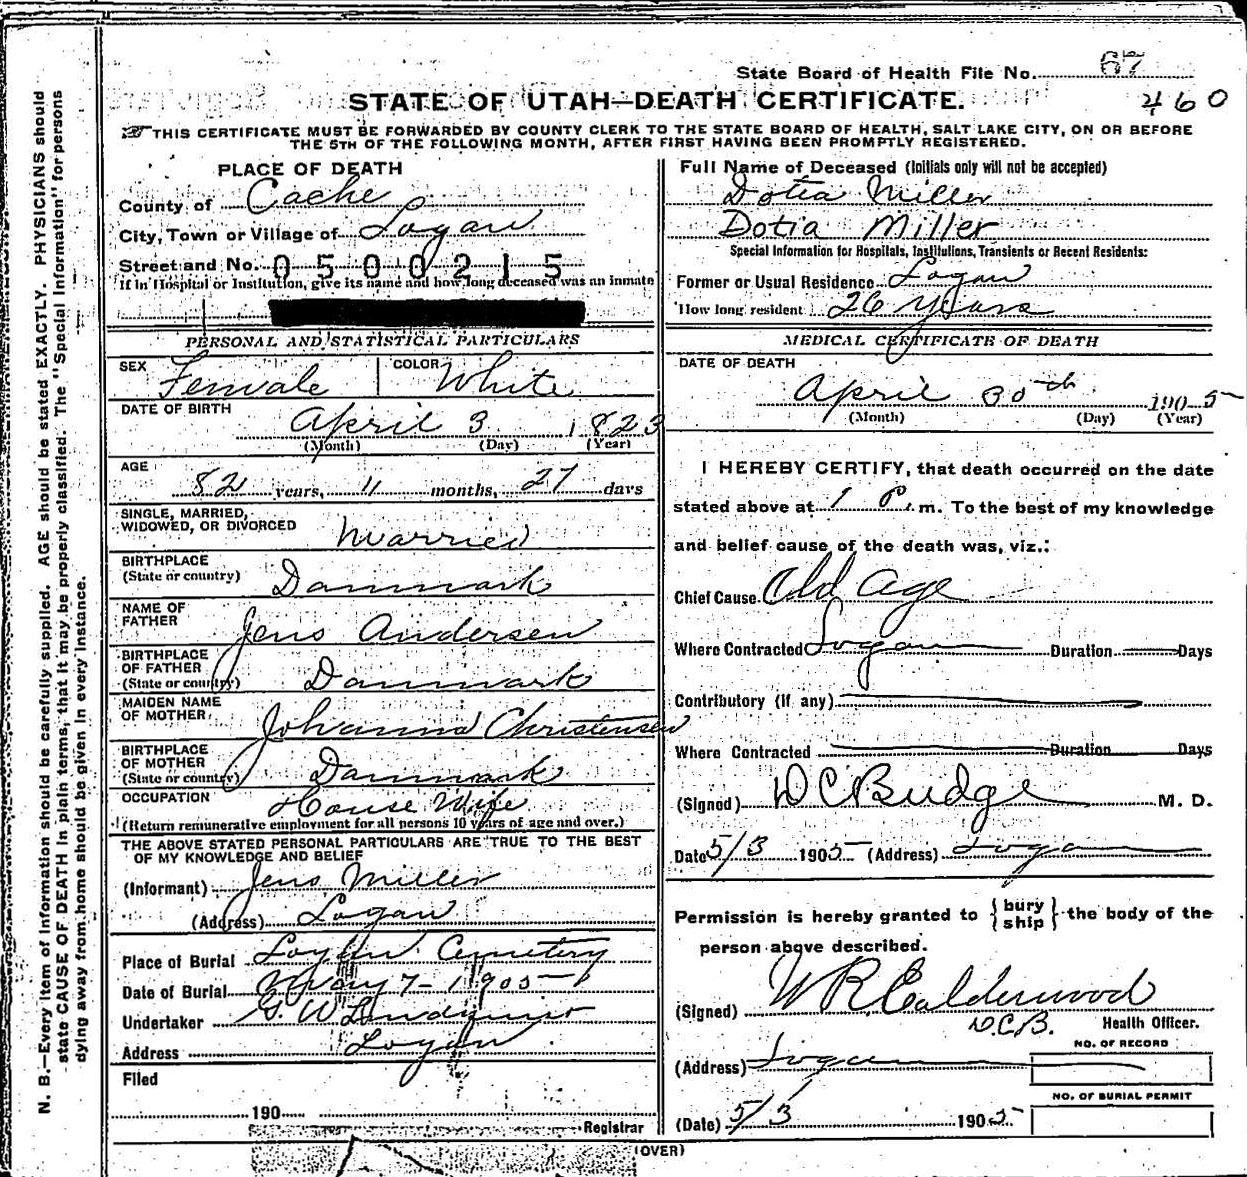 State Board of Health File No. 67
460
STATE OF UTAH—DEATH CERTIFICATE.
THIS CERTIFICATE MUST BE FORWARDED BY COUNTY CLERK TO THE STATE BOARD OF HEALTH, SALT LAKE CITY, ON OR BEFORE
THE 5TH OF THE FOLLOWING MONTH, AFTER FIRST HAVING BEEN PROMPTLY REGISTERED.
PLACE OF DEATH
County of Cache
City, Town or Village of Logan
Street and No. 0500215
If in Hospital or Institution, give its name and how long deceased was an inmate
PERSONAL AND STATISTICAL PARTICULARS
SEX Female COLOR White
DATE OF BIRTH
April 3 1823
(Month) (Day) (Year)
AGE
82 years, 11 months, 27 days
SINGLE, MARRIED,
WIDOWED, OR DIVORCED Married
BIRTHPLACE
(State or country) Danmark
NAME OF
FATHER Jens Andersen
BIRTHPLACE
OF FATHER
(State or country) Danmark
MAIDEN NAME
OF MOTHER Johanna Christensen
BIRTHPLACE
OF MOTHER
(State or country) Danmark
OCCUPATION House Wife
(Return remunerative employment for all persons 10 years of age and over.)
THE ABOVE STATED PERSONAL PARTICULARS ARE TRUE TO THE BEST
OF MY KNOWLEDGE AND BELIEF
(Informant) Jens Miller
(Address) Logan
Place of Burial Logan Cemetery
Date of Burial May 7 - 1905
Undertaker G. W. Lindquist
Address Logan
Filed
190
Registrar
Full Name of Deceased (Initials only will not be accepted)
Dotia Miller
Dotia Miller
Special Information for Hospitals, Institutions, Transients or Recent Residents:
Former or Usual Residence Logan
How long resident 26 Years
MEDICAL CERTIFICATE OF DEATH
DATE OF DEATH
April 30th 1905
(Month) (Day) (Year)
I HEREBY CERTIFY, that death occurred on the date
stated above at 1 P. m. To the best of my knowledge
and belief cause of the death was, viz.:
Chief Cause Old Age
Where Contracted Logan Duration Days
Contributory (if any)
Where Contracted Duration Days
(Signed) D C Budge M. D.
Date 5/3 1905 (Address) Logan
Permission is hereby granted to { bury
ship } the body of the
person above described.
(Signed) W R Calderwood
D.C.B. Health Officer.
NO. OF RECORD
(Address) Logan
NO. OF BURIAL PERMIT
(Date) 5/3 1905
(OVER)
N. B.—Every item of information should be carefully supplied. AGE should be stated EXACTLY. PHYSICIANS should
state CAUSE OF DEATH in plain terms, that it may be properly classified. The "Special Information" for persons
dying away from home should be given in every instance.